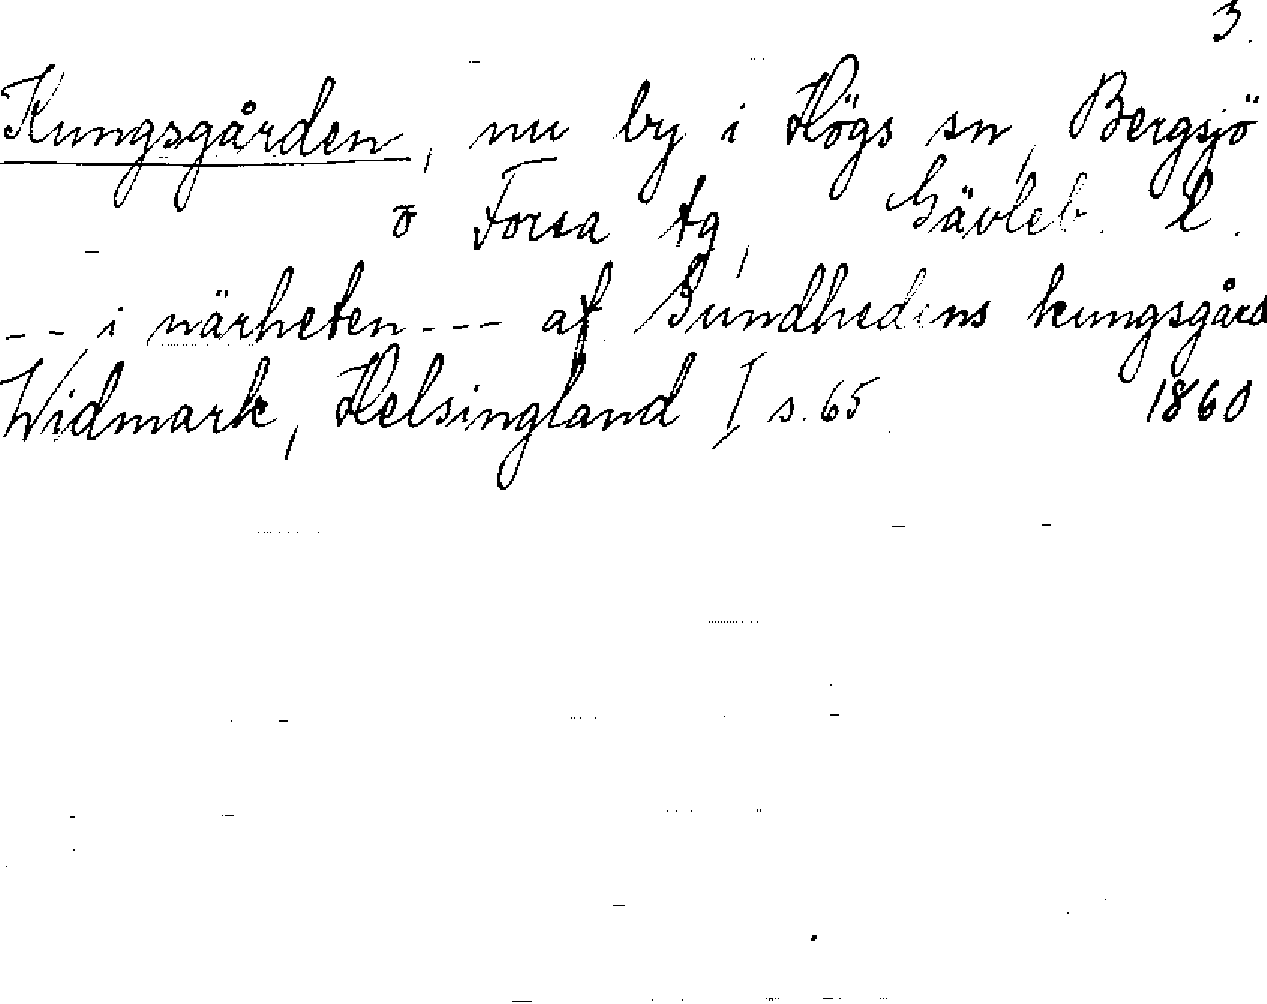 3.
Kungsgården, nu by i Högs sn, Bergsjö
o Forsa tg, Gävleb. l.
-- i närheten --- af Sundhedens kungsgård
Widmark, Helsingland I s. 65 1860